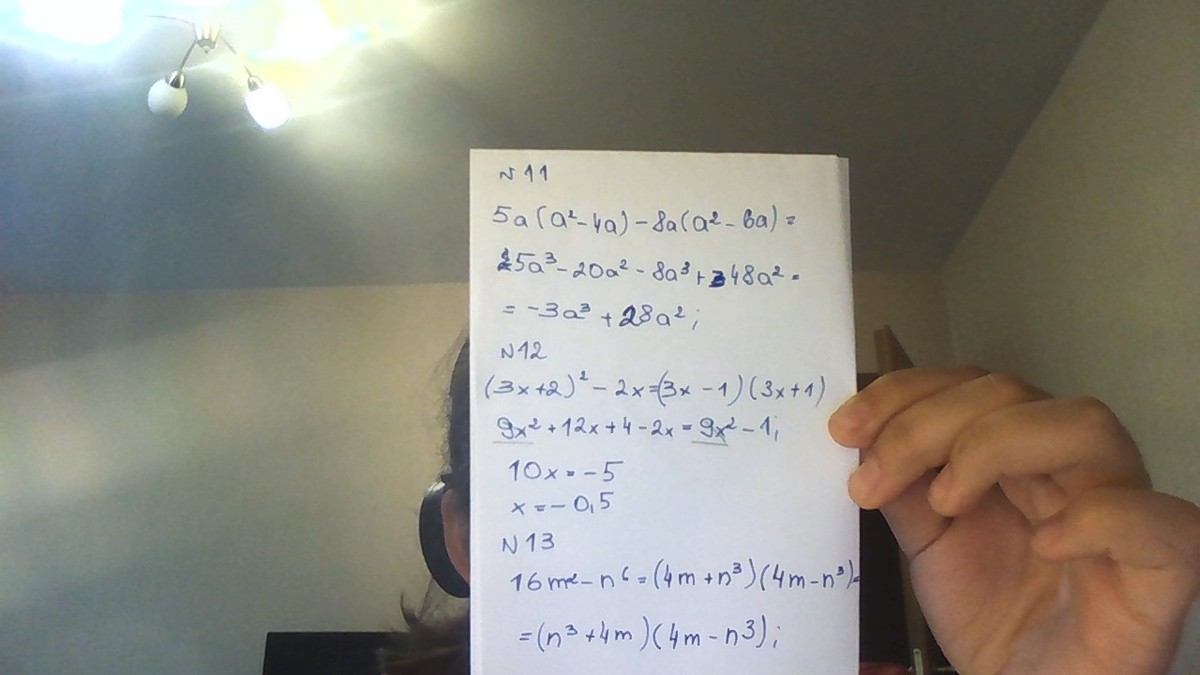 N11
5a(a²-4a)-8a(a²-6a)=
5a³-20a²-8a³+48a²=
=-3a³+28a²;
N12
(3x+2)²-2x=(3x-1)(3x+1)
9x²+12x+4-2x=9x²-1;
10x=-5
x=-0,5
N13
16m²-n⁶=(4m+n³)(4m-n³)=
=(n³+4m)(4m-n³);